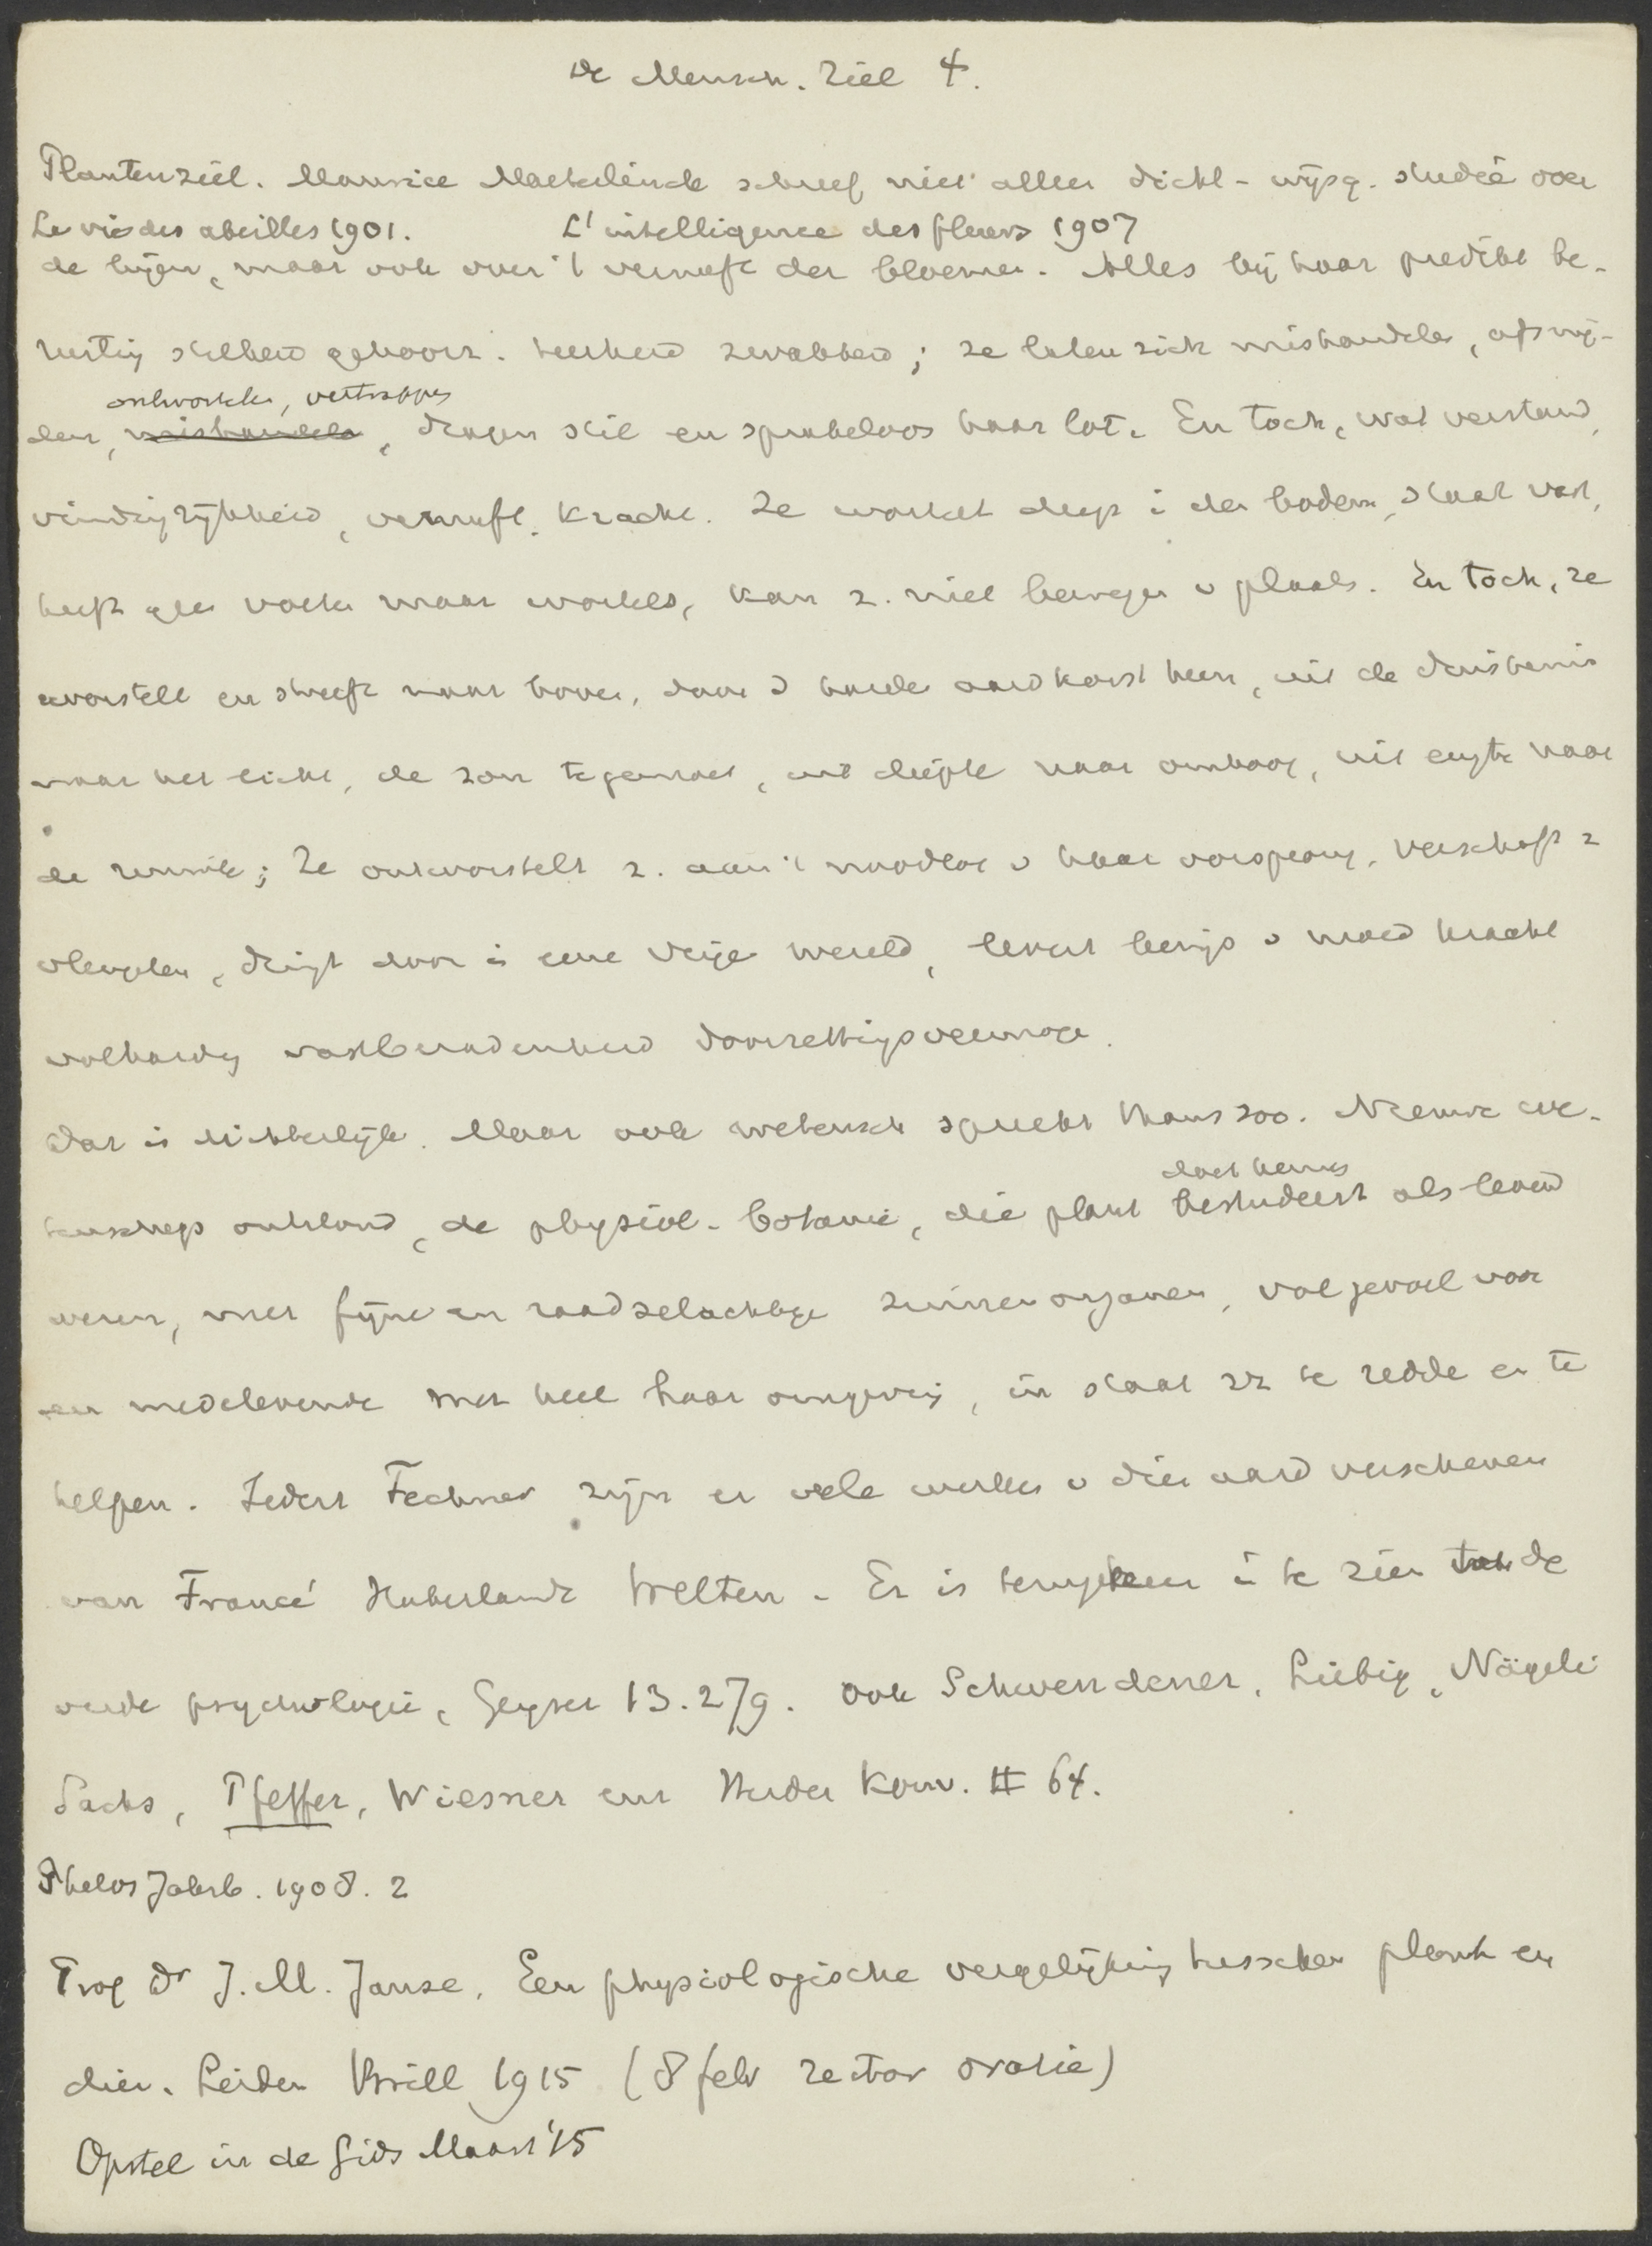 De Mensch. Ziel 4.
Plantenziel. Maurice Maeterlinck schreef niet alleen dicht-wijsg. studie over
La vie des abeilles 1901. L'intelligence des fleurs 1907
de bijen, maar ook over 't vernuft der bloemen. Alles bij haar predikt be-
rusting stilheid gehoorz. teerheid zwakheid; ze laten zich mishandelen, afsnij-
ontwortelen, vertrappen
den, mishandele, dragen stil en sprakeloos haar lot. En toch, wat verstand,
vindingrijkheid, vernuft, kracht. Ze wortelt diep i den bodem, staat vast,
heeft geen voeten maar wortels, kan z. niet bewegen v plaats. En toch, ze
worstelt en streeft naar boven, door d harde aardkorst heen, uit de duisternis
naar het licht, de zon tegemoet, uit diepte naar omhoog, uit engte naar
de ruimte; Ze ontworstelt z. aan 't noodlot v haar oorsprong, verschaft z
vleugelen, dringt door i eene vrije wereld, levert bewijs v moed kracht
volharding vastberadenheid doorzettingsvermogen.
Dat is dichterlijk. Maar ook wetensch spreekt thans zoo. Nieuwe we-
doet kennen
tenschap ontstond, de physiol. botanie, die plant bestudeert als levend
wezen, met fijne en raadselachtige zinnenorganen, vol gevoel voor
en medelevende met heel haar omgeving, in staat zich te redde en te
helpen. Sedert Fechner zijn er vele werken v dien aard verschenen
van Francé Haberlandt Welten. Er is terugkeer i te zien tot de
oude psychologie, Geyser 13.279. Ook Schwendener, Liebig, Nägeli
Sachs, Pfeffer, Wiesner enz Herder Konv. II 64.
Philos Jahrb. 1908. 2
Prof Dr J. M. Janse, Een physiologische vergelijking tusschen plant en
dier. Leiden Brill 1915 (8 febr rector oratie)
Opstel in de Gids Maart '15